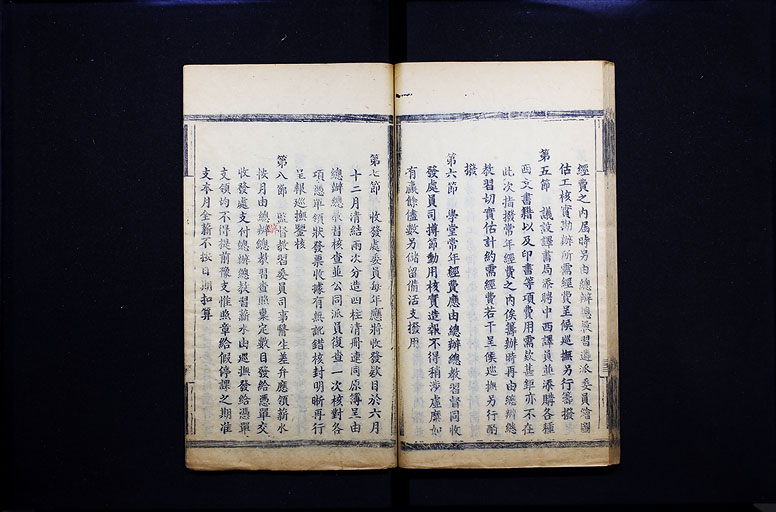 經費之內屆時另由總辦總教習遴派委員繪圖
估工核實勘辦所需經費呈候巡撫另行籌撥
第五節　議設譯書局添聘中西譯員並添購各種
西文書籍以及印書等項費用需款甚鉅亦不在
此次指撥常年經費之內俟籌辦時再由總辦總
教習切實估計約需經費若干呈候巡撫另行酌
撥
第六節　學堂常年經費應由總辦總教習督同收
發處員司撙節動用核實造報不得稍涉虛糜如
有贏餘儘數另儲留備活支撥用
第七節　收發處委員每年應將收發款目於六月
十二月清結兩次分造四柱清冊連同原簿呈由
總辦總教習核查並公同派員復查一次核對各
項憑單領狀發票收據有無訛錯核封明晰再行
呈報巡撫鑒核
第八節　監督教習委員司事醫生差弁應領薪水
按月由總辦總教習查照稟定數目發給憑單交
收發處支付總辦總教習薪水由巡撫發給憑單
支領均不得提前豫支惟照章給假停課之期准
支本月全薪不按日期扣算